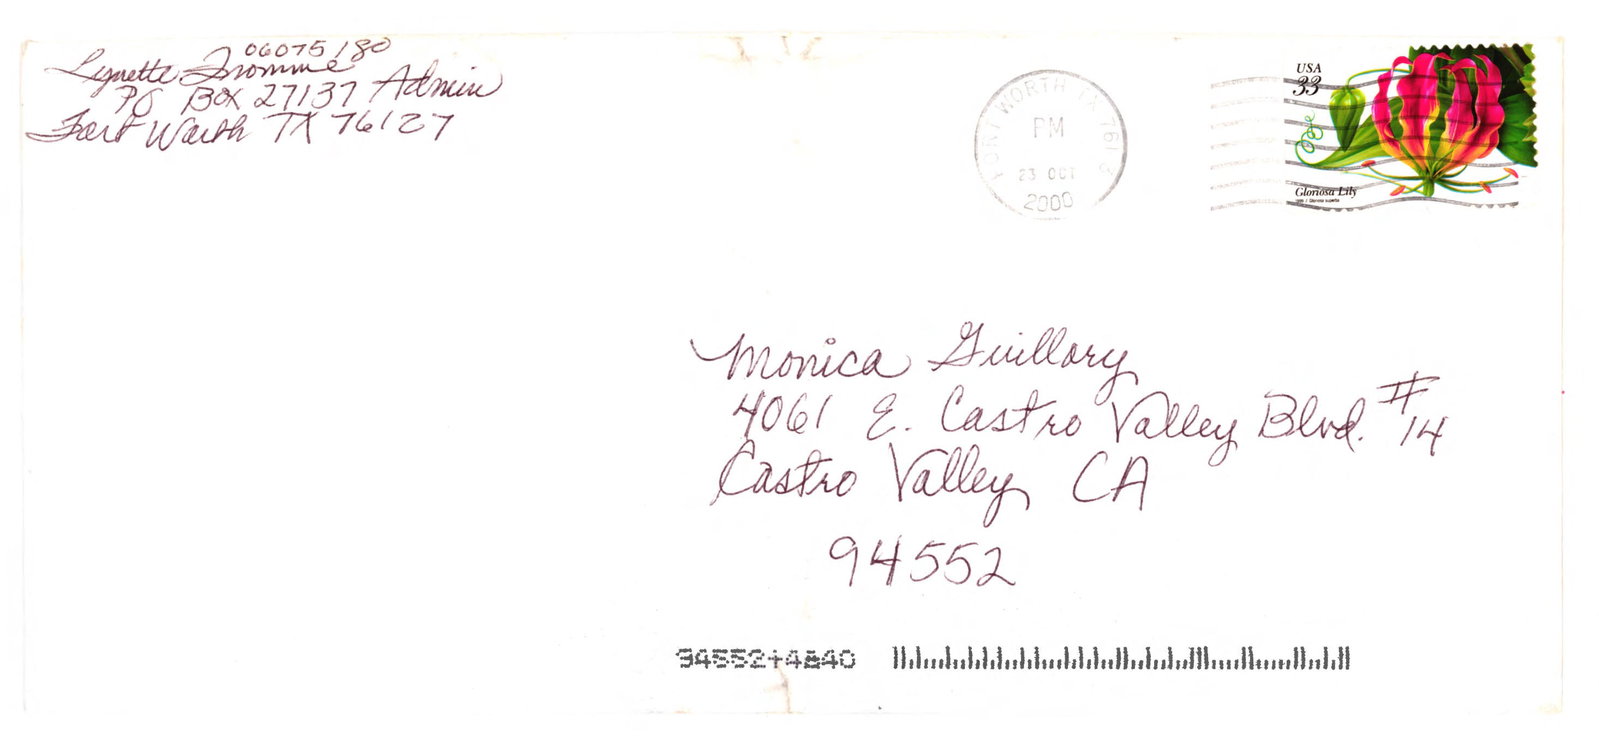 06075180
Lynette Fromme
PO Box 27137 Admin
Fort Worth TX 76127
FORT WORTH TX 761
PM
23 OCT
2000
USA
33
Gloriosa Lily
Monica Guillory
4061 E. Castro Valley Blvd. #14
Castro Valley, CA
94552
94552+4840